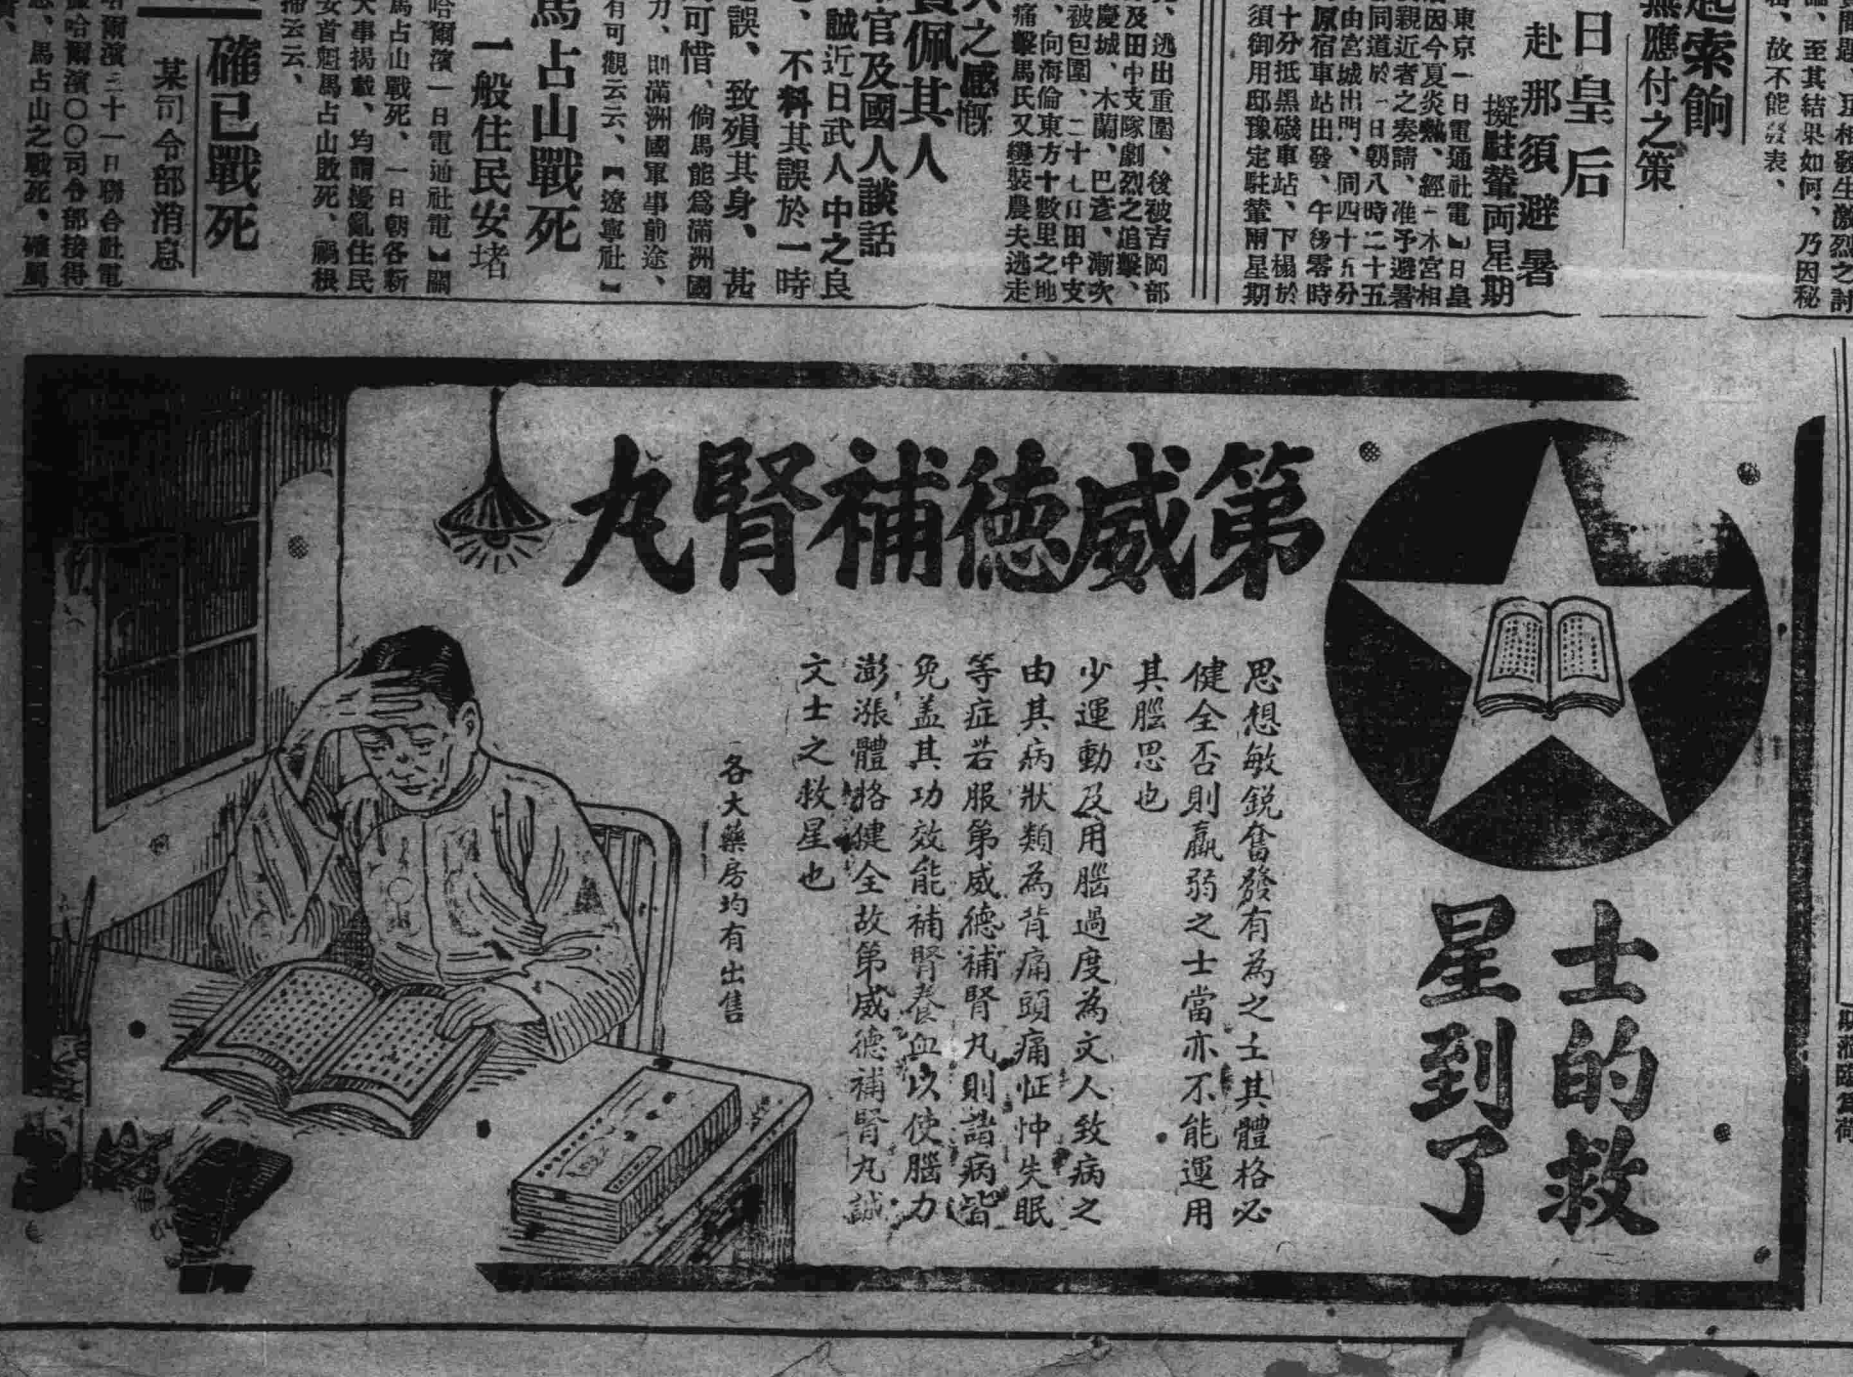 起索餉
無應付之策
日皇后
赴那須避暑
擬駐輦兩星期
東京一日電通社電】日皇
后因今夏炎熱、經一木宮相
親近者之奏請、准予避暑
同道於一日朝八時二十五
由宮城出門、同四十五分
原宿車站出發、午後零時
十分抵黑磯車站、下榻於
須御用邸豫定駐輦兩星期
逃出重圍、後被吉岡部
及田中支隊劇烈之追擊、
慶城、木蘭、巴彥、漸次
被包圍、二十七日田中支
向海倫東方十數里之地
痛擊馬氏又變裝農夫逃走
之感慨
佩其人
官及國人談話
誠近日武人中之良
不料其誤於一時
誤、致殞其身、甚
可惜、倘馬能為滿洲國
力、則滿洲國軍事前途、
有可觀云云、【遼寧社】
馬占山戰死
一般住民安堵
哈爾濱一日電通社電】關
馬占山戰死、一日朝各新
大事揭載、均謂擾亂住民
安首魁馬占山敗死、禍根
掃云云、
確已戰死
某司令部消息
哈爾濱三十一日聯合社電
據哈爾濱〇〇司令部接得
息、馬占山之戰死、確屬
第威德補腎丸
士的救
星到了
思想敏銳奮發有為之士其體格必
健全否則羸弱之士當亦不能運用
其腦思也
少運動及用腦過度為文人致病之
由其病狀類為背痛頭痛怔忡失眠
等症若服第威德補腎丸則諸病皆
免蓋其功效能補腎養血以使腦力
澎漲體格健全故第威德補腎丸誠
文士之救星也
各大藥房均有出售